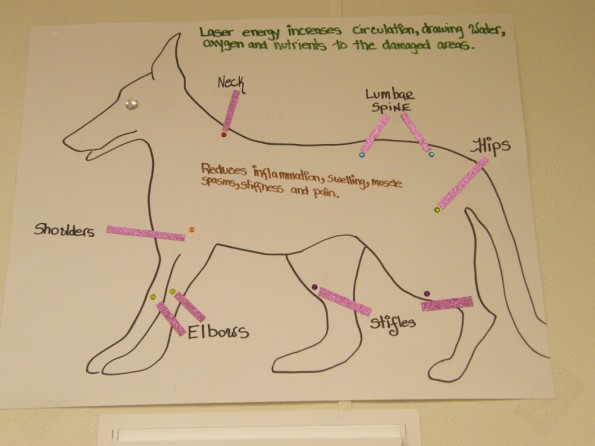 Laser energy increases circulation, drawing Water,
oxygen and nutrients to the damaged areas.
Neck
Lumbar
Spine
Hips
Reduces inflammation, swelling, muscle
spasms, stiffness and pain.
Shoulders
Elbows
Stifles